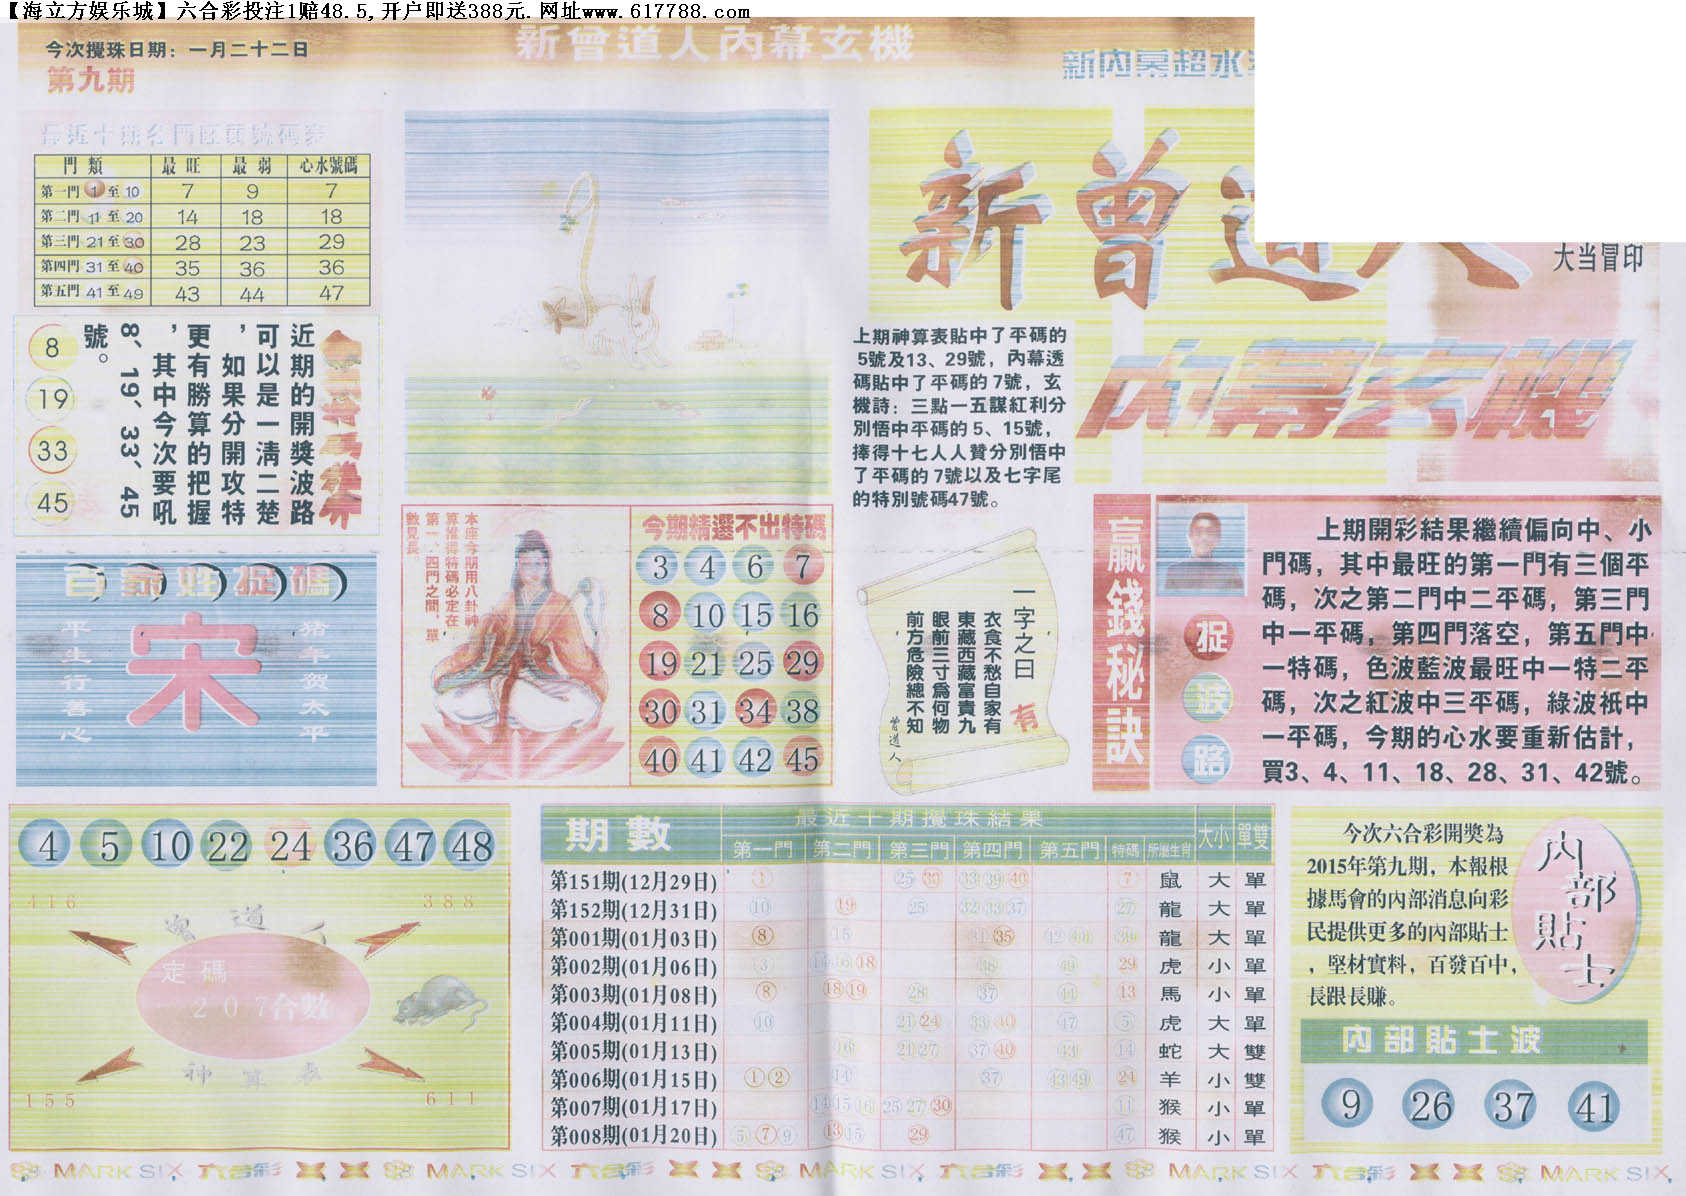 【海立方娱乐城】六合彩投注1赔48.5,开户即送388元.网址www.617788.com
今次攪珠日期：一月二十二日
第九期
新曾道人內幕玄機
新內幕超水
最近十期各門旺弱號碼表
門類 最旺 最弱 心水號碼
第一門 1 至 10 7 9 7
第二門 11 至 20 14 18 18
第三門 21 至 30 28 23 29
第四門 31 至 40 35 36 36
第五門 41 至 49 43 44 47
8
19
33
45
近期的開獎波路
可以是一清二楚
，如果分開攻特
更有勝算的把握
，其中今次要吼
8、19、33、45
號。
新曾道人
內幕玄機
大当冒印
上期神算表貼中了平碼的
5號及13、29號，內幕透
碼貼中了平碼的 7號，玄
機詩：三點一五謀紅利分
別悟中平碼的 5、15號，
捧得十七人人贊分別悟中
了平碼的 7號以及七字尾
的特別號碼47號。
百家姓捉碼
猪年贺太平
宋
平生行善心
本座今期用八卦神
算推得特碼必定在
第一、四門之間，單
數見長。
今期精選不出特碼
3 4 6 7
8 10 15 16
19 21 25 29
30 31 34 38
40 41 42 45
一字之曰
有
衣食不愁自家有
東藏西藏富貴九
眼前三寸為何物
前方危險總不知
曾道人
贏錢秘訣
捉波路
上期開彩結果繼續偏向中、小
門碼，其中最旺的第一門有三個平
碼，次之第二門中二平碼，第三門
中一平碼，第四門落空，第五門中
一特碼，色波藍波最旺中一特二平
碼，次之紅波中三平碼，綠波祇中
一平碼，今期的心水要重新估計，
買3、4、11、18、28、31、42號。
4 5 10 22 24 36 47 48
416 388
曾道人
定碼
207合數
神算表
155 611
期數 最近十期攪珠結果 大小 單雙
第一門 第二門 第三門 第四門 第五門 特碼 所屬生肖
第151期(12月29日) 1 25 30 33 39 40 7 鼠 大 單
第152期(12月31日) 10 19 25 32 33 37 27 龍 大 單
第001期(01月03日) 8 15 31 35 42 39 龍 大 單
第002期(01月06日) 3 14 16 18 38 49 29 虎 小 單
第003期(01月08日) 8 18 19 28 37 44 13 馬 小 單
第004期(01月11日) 10 21 24 33 40 47 5 虎 大 單
第005期(01月13日) 16 21 27 37 40 43 14 蛇 大 雙
第006期(01月15日) 1 2 14 37 43 49 24 羊 小 雙
第007期(01月17日) 14 15 16 25 27 30 11 猴 小 單
第008期(01月20日) 5 7 9 13 15 29 47 猴 小 單
今次六合彩開獎為
2015年第九期，本報根
據馬會的內部消息向彩
民提供更多的內部貼士
，堅材實料，百發百中，
長跟長賺。
內部貼士
內部貼士波
9 26 37 41
MARK SIX 六合彩 MARK SIX 六合彩 MARK SIX 六合彩 MARK SIX 六合彩 MARK SIX